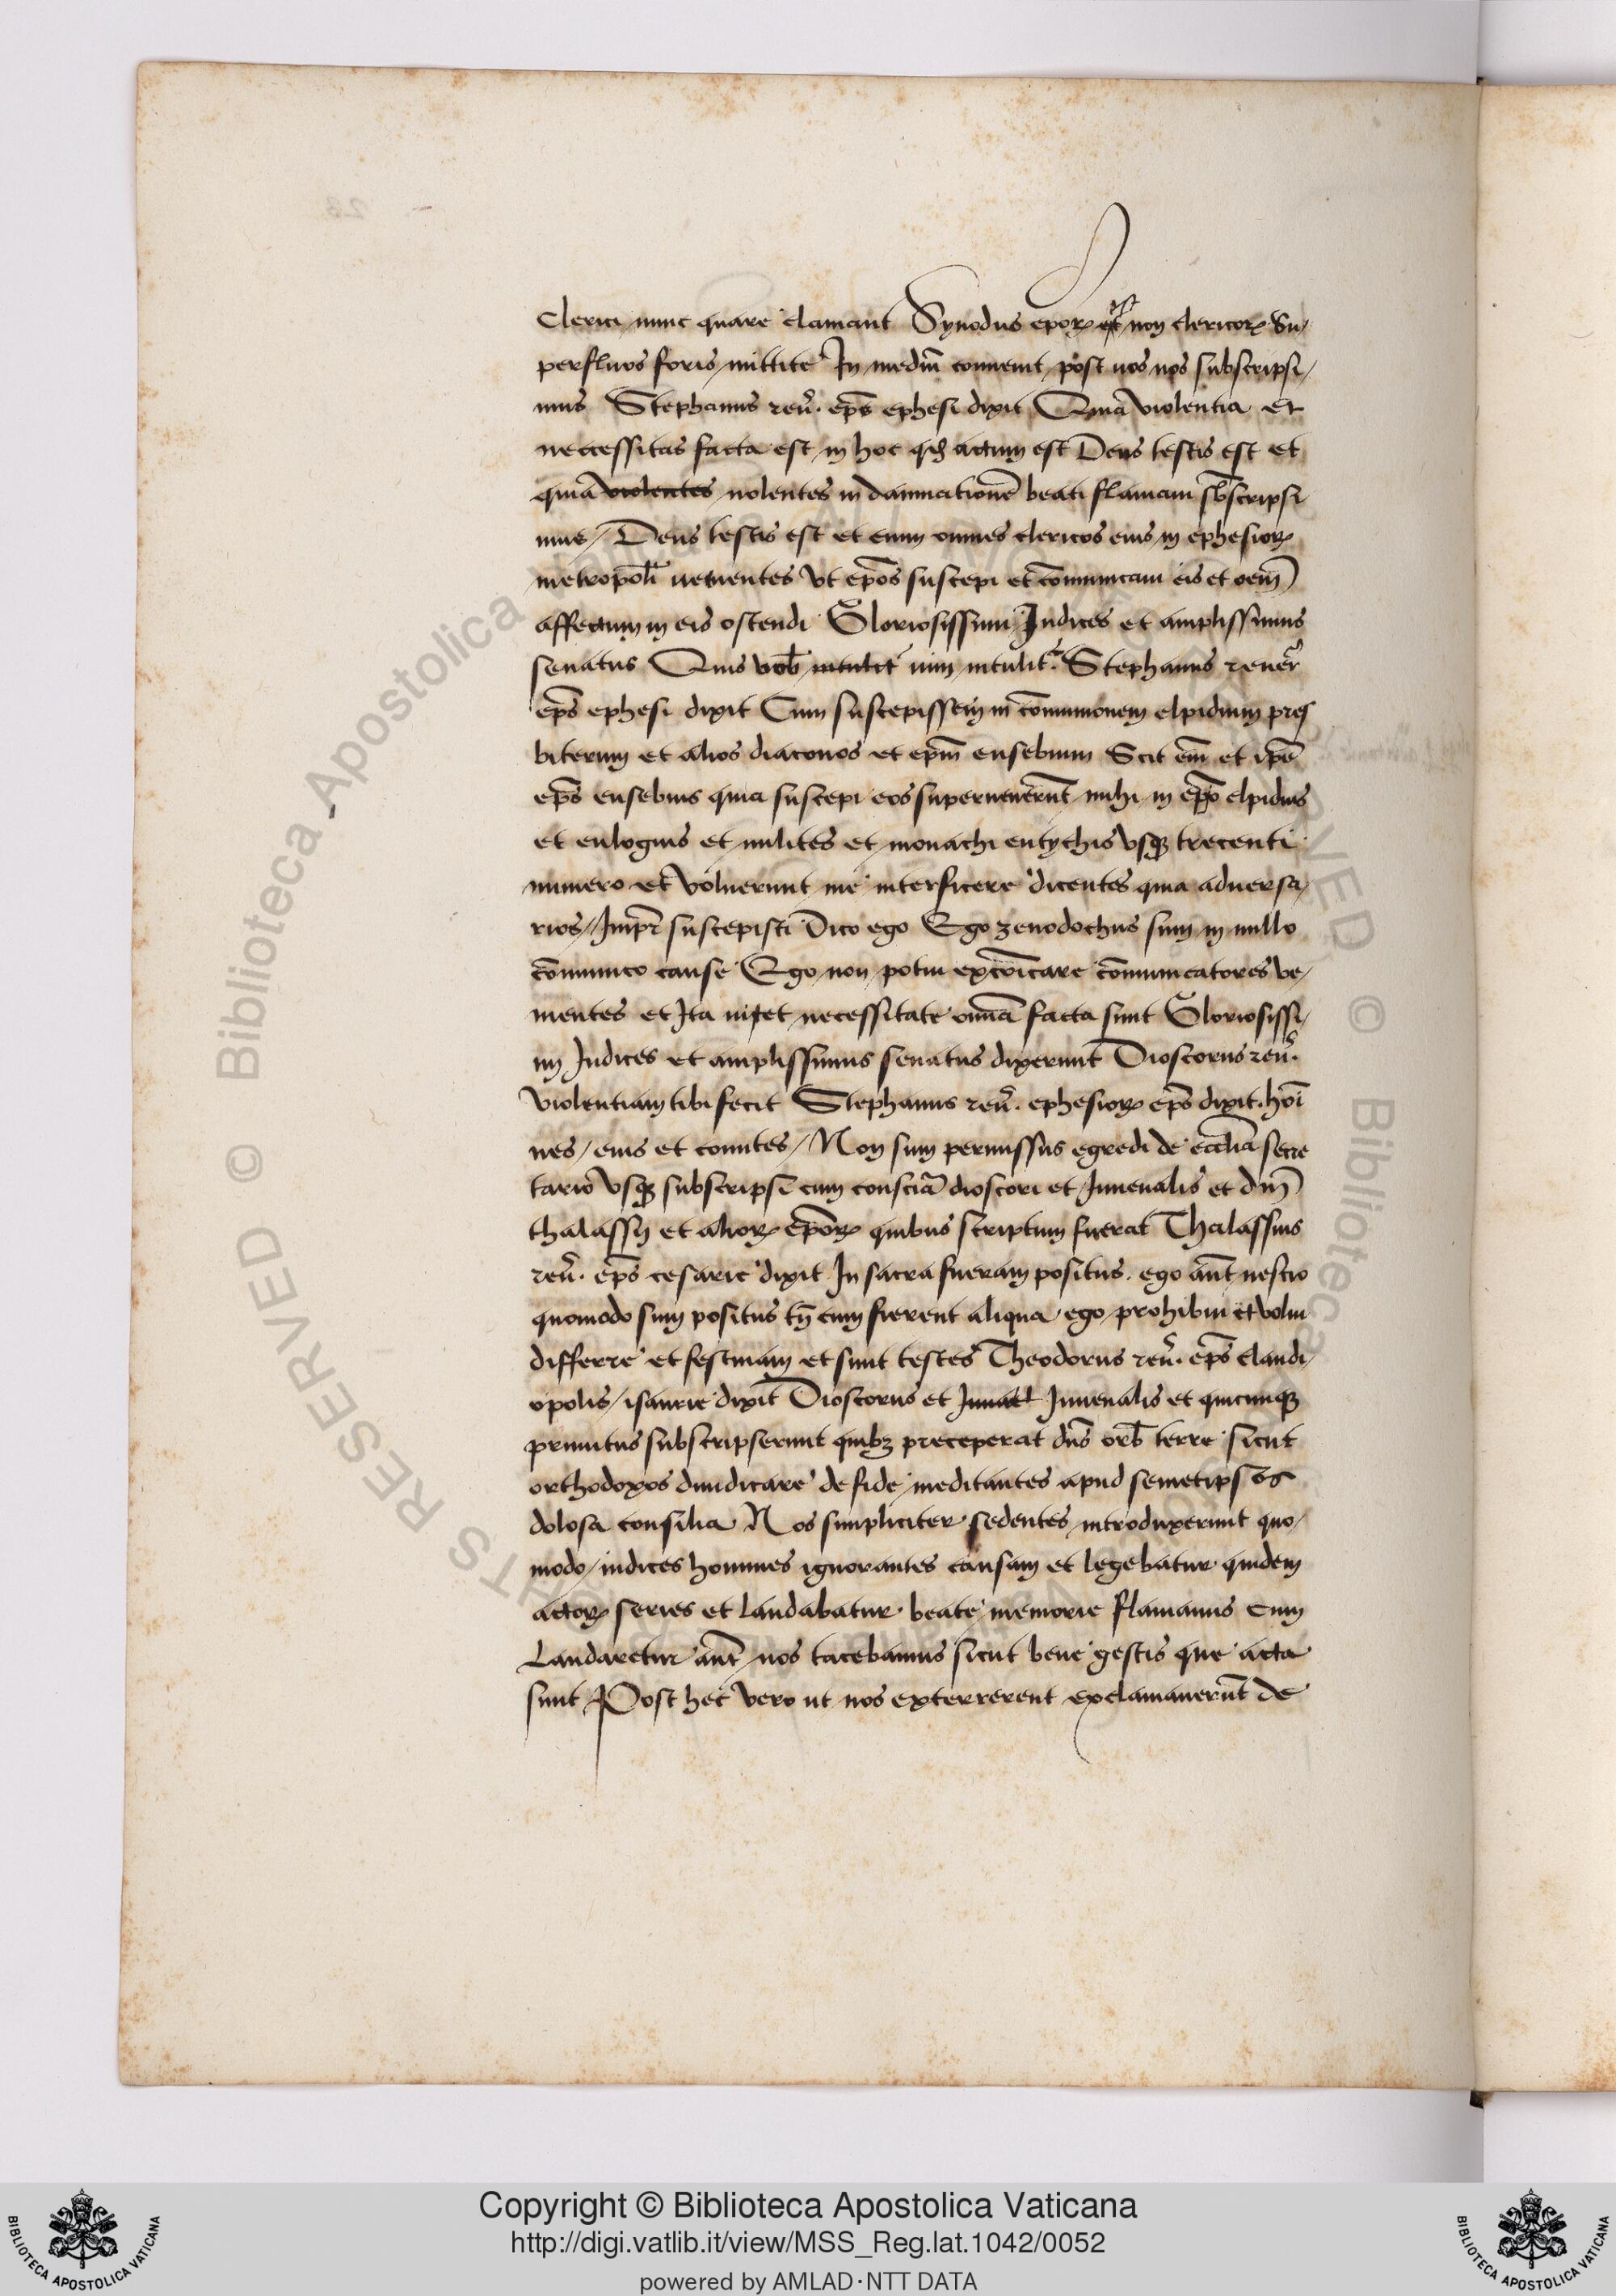 Clerici nunc quare clamant Synodus epoꝝ est non clericoꝝ Su/
perfluos foris mittite In mediū conuenit post uos nos subscripsi/
mus Stephanus reuͥ. ep̄s ephesi dixit Quia violentia et
neccessitas facta est in hoc qđ actum est Deus testis est et
quia violentes nolentes in damnationē beati flauiani sb̄scripsi
mus / Deus testis est et eum omnes clericos eius in ephesioꝝ
metropoli uenientes vt ep̄os suscepi et cōmunicaui eis et oem̄
affectum in eis ostendi Gloriosissimi Iudices et amplissimus
senatus Quis vob̄ intulit uim intulit? Stephanus reuer̄
ep̄s ephesi dixit Cum suscepissem in cōmunionem elpidium pres
biterum et alios diaconos et ep̄m eusebium Scit em̄ et ip̄e
ep̄s eusebius quia suscepi eos superuenerūt mihi in ep̄o elpidius
et eulogius et milites et monachi eutychis vsqꝫ trecenti
numero et voluerunt me interficere dicentes quia aduersa/
rios / Imper̄ suscepisti Dico ego Ego zenodochus sum in nullo
cōmunico cause Ego non potui excōicare cōmunicatores ve/
nientes et Ita ui et necessitate omīa facta sunt Gloriosissi/
mi Iudices et amplissimus senatus dixerunt Dioscorus reuͥ.
violentiam tibi fecit Stephanus reuͥ. ephesioꝝ ep̄s dixit. hoī
nes / eius et comites / Non sum permissus egredi de eccl̄ia secre
tario vsqꝫ subscripsi cum consciā dioscori et Iuuenalis et dm̄
thalassij et alioꝝ ep̄oꝝ quibus scriptum fuerat Thalassius
reuͥ. ep̄s cesarie dixit In sacra fueram positus. ego aūt nescio
quomodo sum positus tn̄ cum fierent aliqua ego prohibui et volui
differre et festinam et sunt testes Theodorus reuͥ. ep̄s claudi/
opolis / isaurie dixit Dioscorus et Iuual Iuuenalis et quicunqꝫ
primitus subscripserunt quibꝫ preceperat dn̄s orb̄ terre sicut
orthodoxos diudicare de fide meditantes apud semetipsos
dolosa consilia Nos simpliciter sedentes introduxerunt quo/
modo / iudices homines ignorantes causam et legebatur quidem
actoꝝ series et laudabatur beate memorie flauianus Cum
Laudaretur aūt nos tacebamus sicut bene gestis que acta
sunt Post hec vero ut nos exterrerent exclamauerūt de
Copyright © Biblioteca Apostolica Vaticana
http://digi.vatlib.it/view/MSS_Reg.lat.1042/0052
powered by AMLAD·NTT DATA